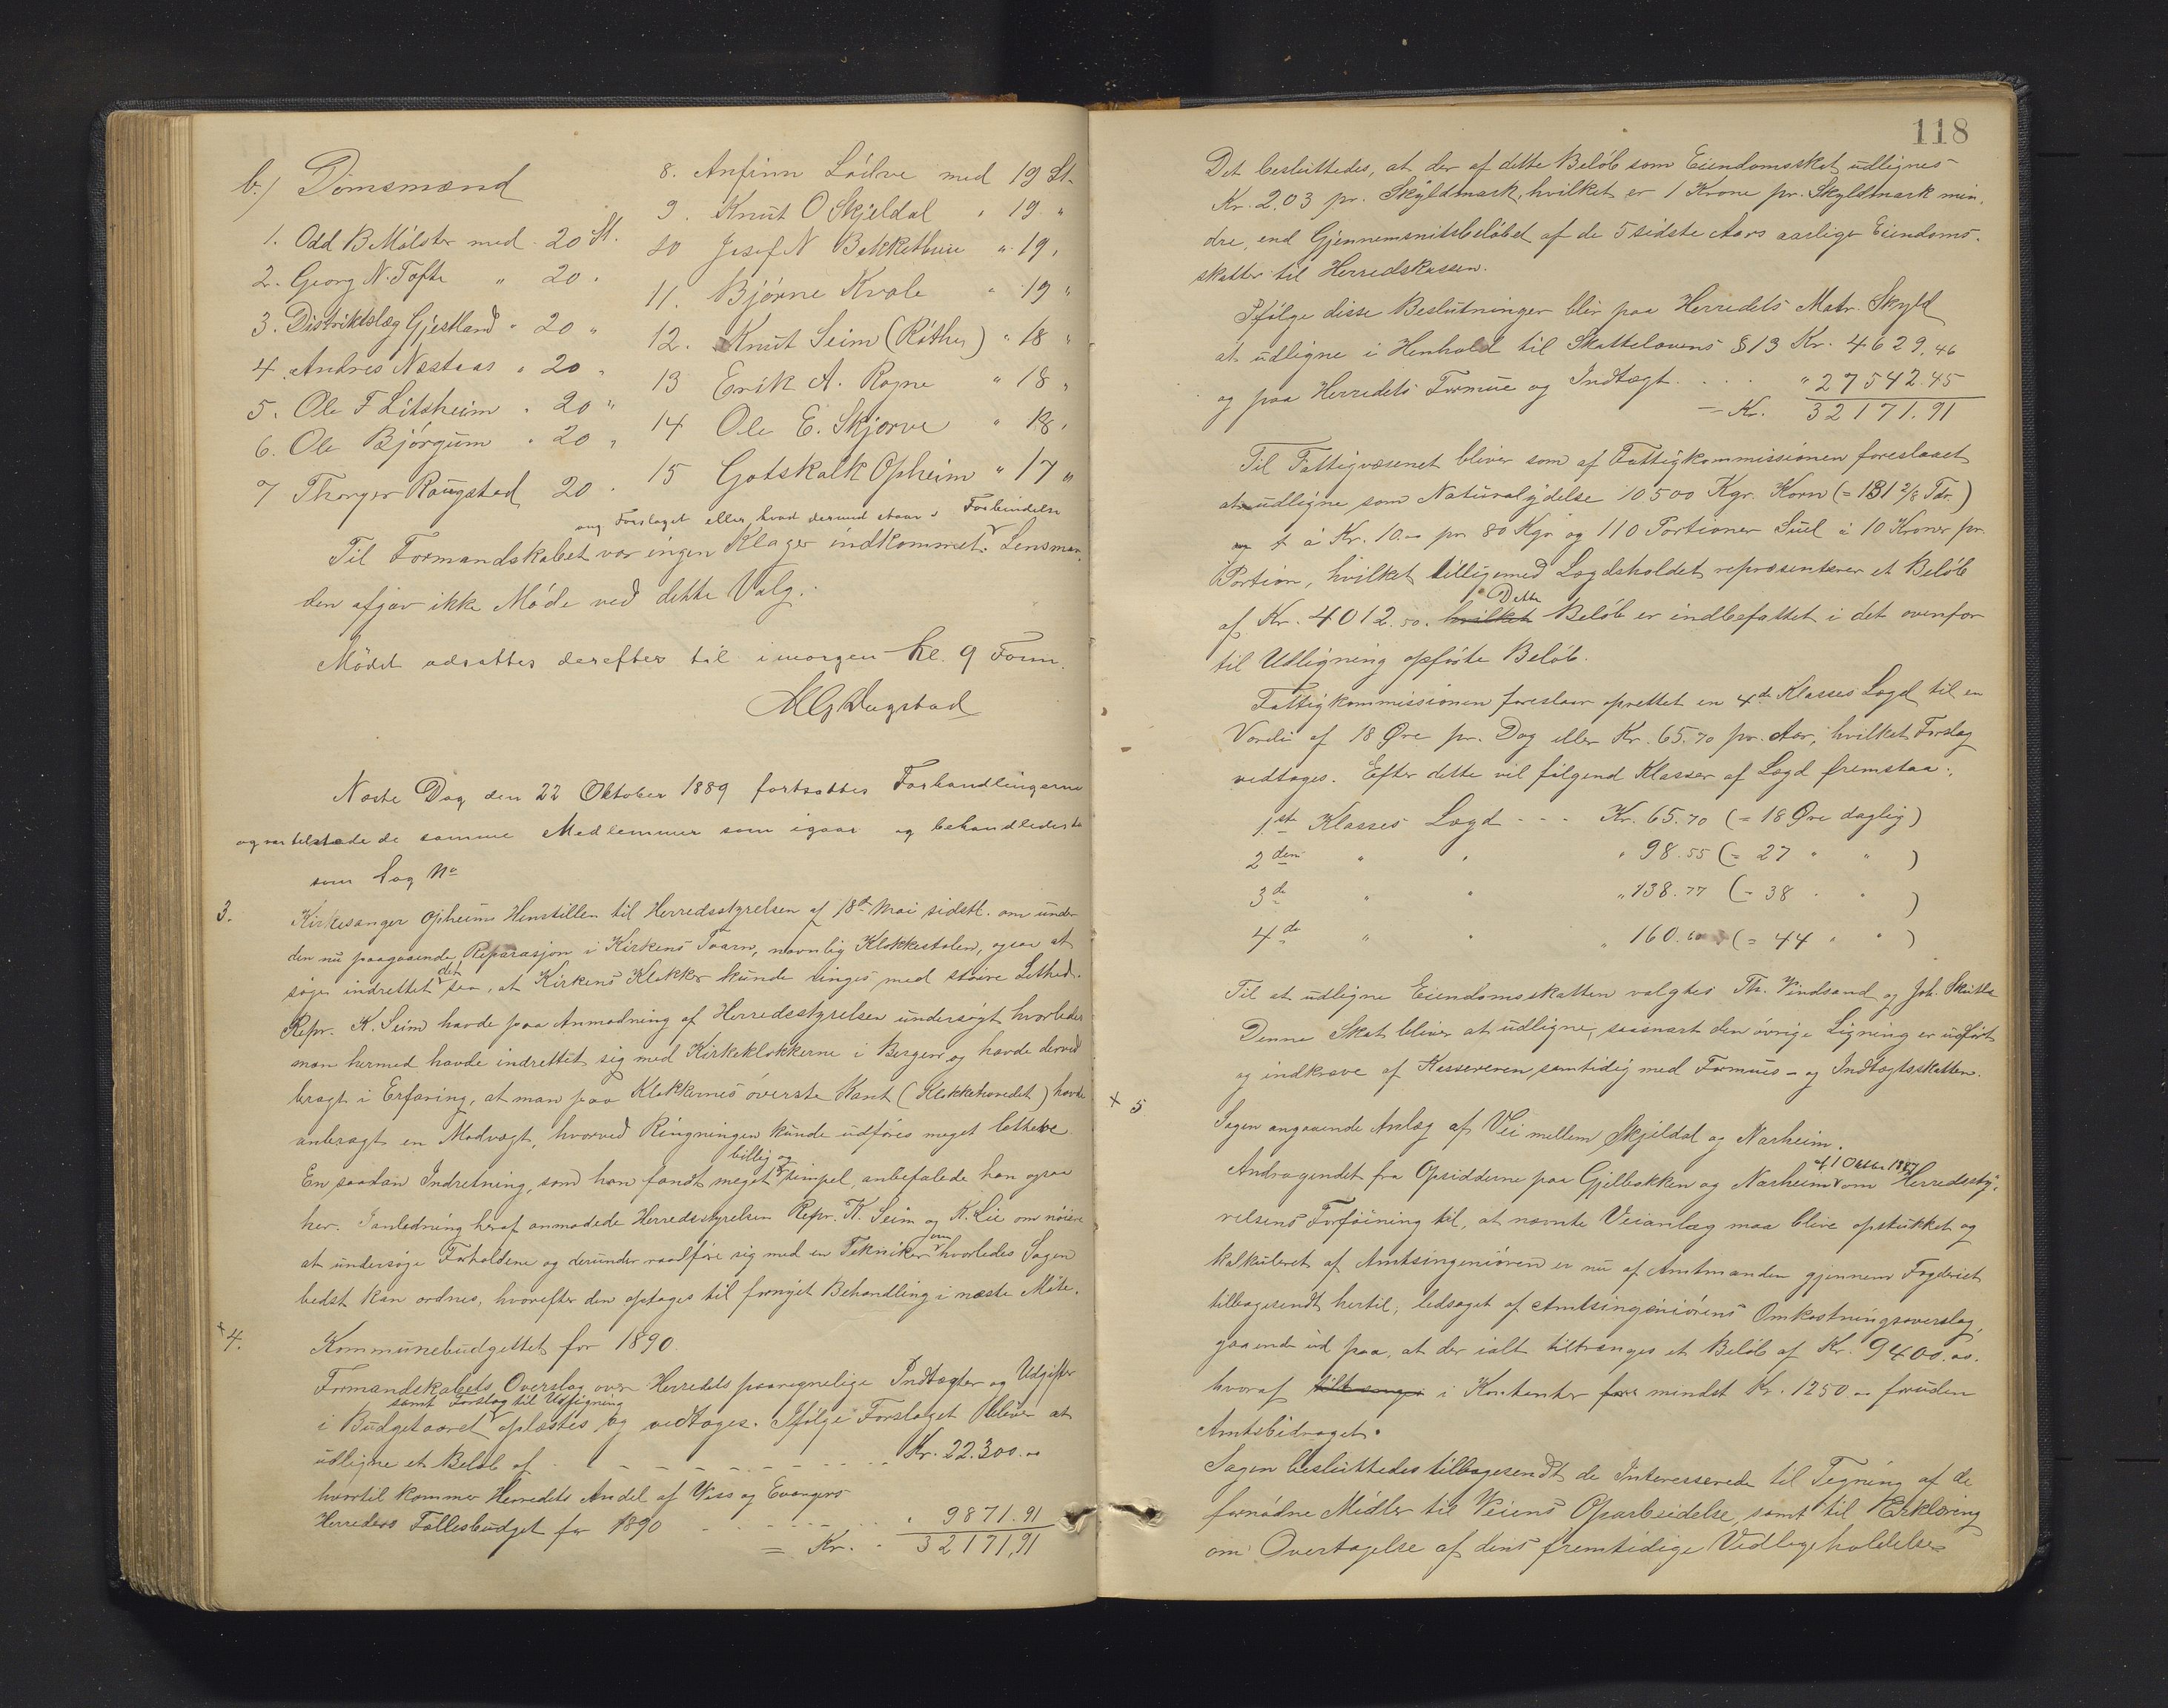 b.) Domsmænd
1. Odd B Mølster med 20 St.
2. Georg N. Tofte " 20 "
3. Distriktslæg Gjestland " 20 "
4. Andres Næstaas " 20 "
5. Ole F Litsheim " 20 "
6. Ole Bjørgum " 20 "
7 Thorger Raugstad 20 "
8. Anfinn Lødve med 19 St.
9. Knut O Skjeldal " 19 "
10 Josef N Bakkethun " 19 "
11. Bjørne Kvale " 19 "
12. Knut Seim (Røthe) " 18 "
13 Erik A. Rogne " 18 "
14 Ole E. Skjerve " 18 "
15 Gotskalk Opheim " 17 "
ang Forslaget eller hvad dermed staar i Forbindelse
Til Formandskabet var ingen Klager indkommet. Lensman-
den afgav ikke Møde ved dette Valg.
Mødet udsattes derefter til imorgen kl. 9 Form.
Næste Dag den 22 Oktober 1889 fortsattes Forhandlingerne
og var tilstæde de samme Medlemmer som igaar og behandledes da
som Sag No
3. Kirkesanger Opheims Henstillen til Herredsstyrelsen af 18de Mai sidstl. om under
den nu paagaaende Reparasjon i Kirkens Taarn, navnlig Klokkestolen, ogsaa at
søge indrettet det saa, at Kirkens Klokker kunde ringes med større Lethed.
Repr. K. Seim havde paa Anmodning af Herredsstyrelsen undersøgt hvorledes
man hermed havde indrettet sig med Kirkeklokkerne i Bergen og havde derved
bragt i Erfaring, at man paa Klokkernes øverste Kant (Klokkehovedet) havde
anbragt en Modvægt, hvorved Ringningen kunde udføres meget lettere.
En saadan Indretning, som han fandt meget billig og simpel, anbefalede han ogsaa
her. I anledning heraf anmodede Herredsstyrelsen Repr. K. Seim og K. Lie om nøiere
at undersøge Forholdene og derunder raadføre sig med en Tekniker om hvorledes Sagen
bedst kan ordnes, hvorefter den optages til fornyet Behandling i næste Møte.
+ 4. Kommunebudgettet for 1890.
Formandskabets Overslag over Herredets paaregnelige Indtægter og Udgifter
samt Forslag til Udligning
i Budgetaaret oplæstes og vedtoges. Ifølge Forslaget bliver at
udligne et Beløb af - - - - - - Kr. 22.300.00
hvortil kommer Herredets Andel af Voss og Evangers
Herreders Fællesbudget for 1890 - - - - " 9871.91
= Kr. 32171,91
118
Det besluttedes, at der af dette Beløb som Eiendomsskat udlignes
Kr. 2,03 pr. Skyldmark, hvilket er 1 Krone pr. Skyldmark min-
dre, end Gjennemsnitsbeløbet af de 5 sidste Aars aarlige Eiendoms-
skatter til Herredskassen.
Ifølge disse Beslutninger blir paa Herredets Matr. Skyld
at udligne i Henhold til Skattelovens § 13 Kr. 4629,46
og paa Herredets Formue og Indtægt . . . . " 27542.45
= Kr. 32171.91
Til Fattigvæsenet bliver som af Fattigkommissionen foreslaaet
at udligne som Naturalydelse 10500 Kgr. Korn (= 131 2/8 Tdr.)
à Kr. 10.00 pr. 80 Kgr og 110 Portioner Suel à 10 Kroner pr.
Portion, hvilket tilligemed Lægdsholdet repræsenterer et Beløb
af Kr. 4012.50. hvilket Dette Beløb er indbefattet i det ovenfor
til Udligning opførte Beløb.
Fattigkommissionen foreslaar oprettet en 4de Klasses Lægd til en
Værdi af 18 Øre pr. Dag eller Kr. 65.70 pr. Aar, hvilket Forslag
vedtoges. Efter dette vil følgend Klasser af Lægd fremstaa:
1ste Klasses Lægd - - - Kr. 65.70 (= 18 Øre daglig)
2den " " " 98.55 (= 27 " " )
3de " " " 138.77 (= 38 " " )
4de " " " 160.60 (= 44 " " )
Til at udligne Eiendomsskatten valgtes Th. Vindsand og Joh. Skutle
Denne Skat bliver at udligne, saasnart den øvrige Ligning er udført
og indkræve af Kassereren samtidig med Formues- og Indtægtsskatten.
+ 5 Sagen angaaende Anlæg af Vei mellem Skjeldal og Nærheim.
Andragendet fra Opsidderne paa Gjelbakken og Nærheim af 1 Oktbr 1887 om Herredssty-
relsens Forføining til, at nævnte Veianlæg maa blive opstukket og
kalkuleret af Amtsingeniøren er nu af Amtmanden gjennem Fogderiet
tilbagesendt hertil, ledsaget af Amtsingeniørens Omkostningsoverslag,
gaaende ud paa, at der ialt tiltrænges et Beløb af Kr. 9400.00.
hvoraf i Kontanter mindst Kr. 1250.00 foruden
Amtsbidraget.
Sagen besluttedes tilbagesendt de Interesserede til Tegning af de
fornødne Midler til Veiens Oparbeidelse, samt til Erklæring
om Overtagelse af dens fremtidige Vedligeholdelse